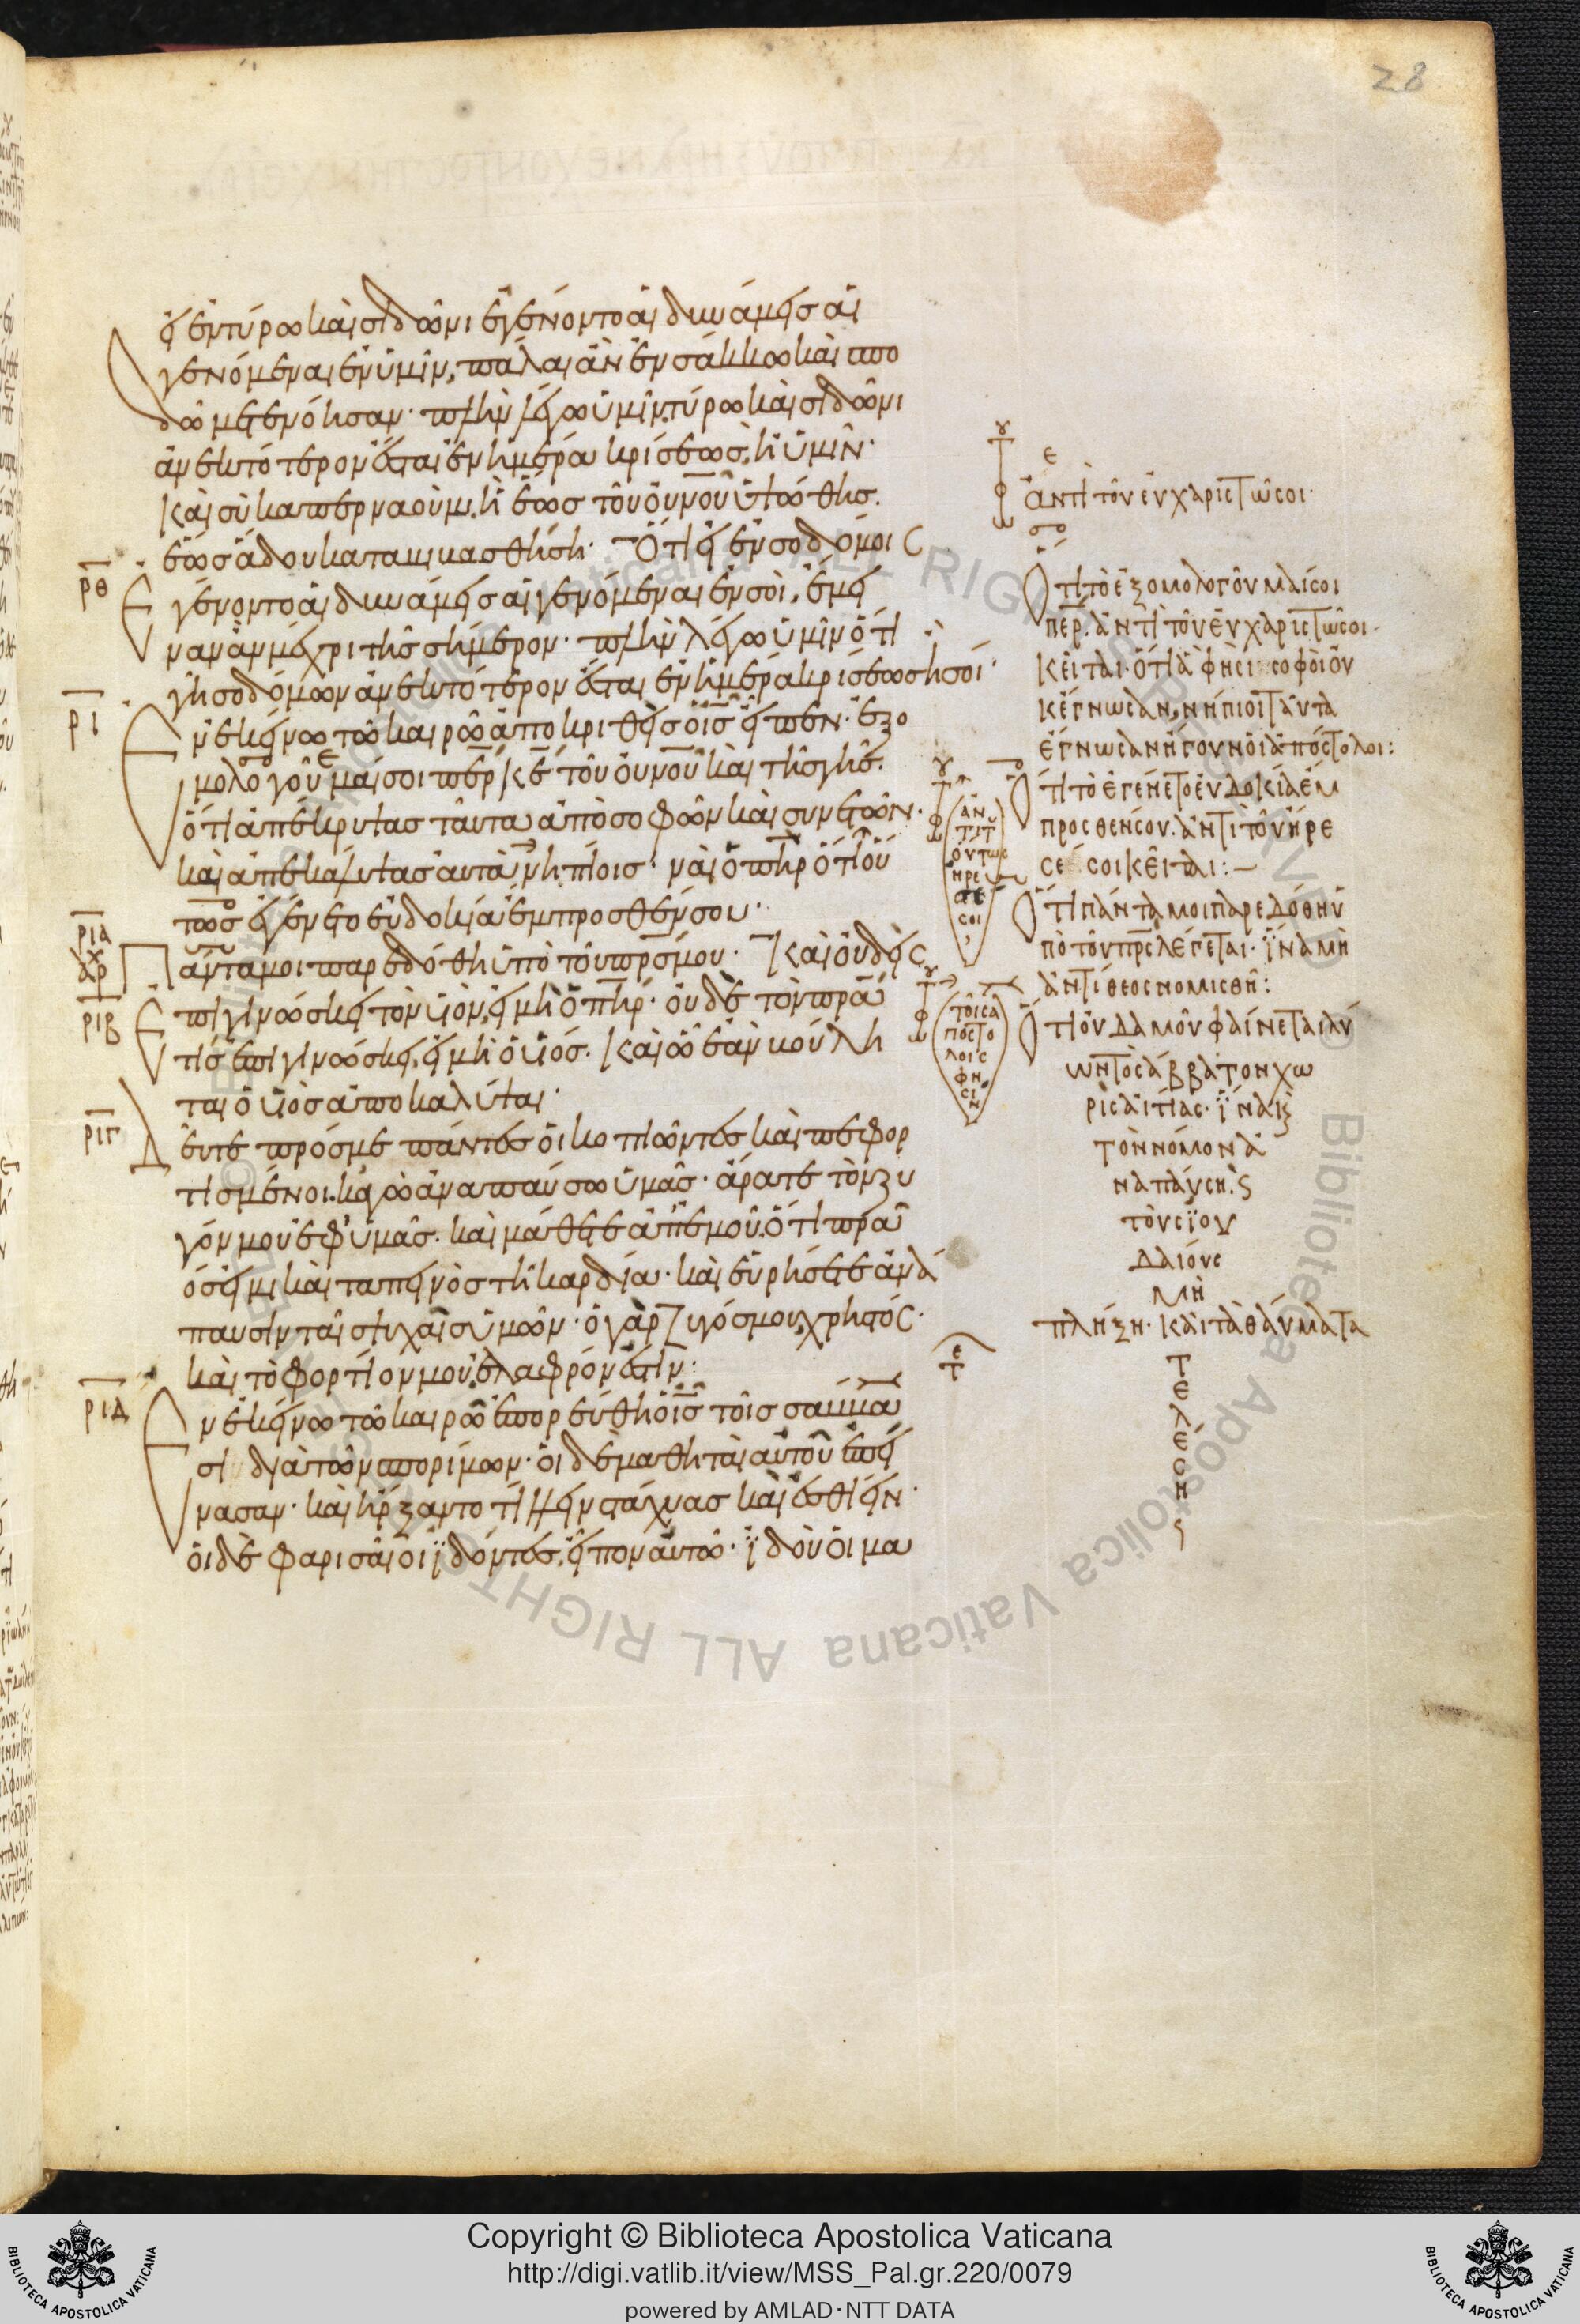 28
εἰ ἐν τύρω καὶ σιδῶνι ἐγένοντο αἱ δυνάμεις αἱ
γενόμεναι ἐν ὑμῖν, πάλαι ἂν ἐν σάκκω καὶ σπο
δῶ μετενόησαν· πλὴν λέγω ὑμῖν, τύρω καὶ σιδῶνι
ἀνεκτότερον ἔσται ἐν ἡμέρα κρίσεως, ἢ ὑμῖν·
Καὶ σὺ καπερναοὺμ, ἡ ἕως τοῦ οὐνοῦ ὑψώθης.
ἕως ἅδου καταβιβασθήση· Ὅτι εἰ ἐν σοδόμοις
ρθ
ἐγένοντο αἱ δυνάμεις αἱ γενόμεναι ἐν σοὶ, ἔμει
ναν ἂν μέχρι τῆς σήμερον· πλὴν λέγω ὑμῖν ὅτι
γῆ σοδόμων ἀνεκτότερον ἔσται ἐν ἡμέρα κρίσεως ἢ σοί·
ρι
Ἐν ἐκείνω τῶ καιρῶ ἀποκριθεὶς ὁ ἰς εἶπεν· ἐξο
μολογοῦμαί σοι περ κε τοῦ οὐνοῦ καὶ τῆς γῆς.
ὅτι ἀπέκρυψας ταῦτα ἀπὸ σοφῶν καὶ συνετῶν·
καὶ ἀπεκάλυψας αὐτὰ νηπίοις· ναὶ ὁ πηρ ὅτι οὕ
τως ἐγένετο εὐδοκία ἔμπροσθέν σου·
ρια
Πάντα μοι παρεδόθη ὑπὸ τοῦ πρς μου· Καὶ οὐδεὶς
ριβ
ἐπιγινώσκει τὸν υἱὸν, εἰ μὴ ὁ πηρ· οὐδὲ τὸν πρα
τίς ἐπιγινώσκει, εἰ μὴ ὁ υἱός. Καὶ ὧ ἐὰν βούλη
ται ὁ υἱὸς ἀποκαλύψαι·
ριγ
Δεῦτε πρός με πάντες οἱ κοπιῶντες καὶ πεφορ
τισμένοι. κἀγὼ ἀναπαύσω ὑμᾶς· ἄρατε τὸν ζυ
γόν μου ἐφ' ὑμᾶς. καὶ μάθετε ἀπ' ἐμοῦ. ὅτι πρᾶ
ός εἰμι καὶ ταπεινὸς τῆ καρδία· καὶ εὑρήσετε ἀνά
παυσιν ταῖς ψυχαῖς ὑμῶν· ὁ γὰρ ζυγός μου, χρηστός·
καὶ τὸ φορτίον μου, ἐλαφρόν ἐστιν:
ριδ
Ἐν ἐκείνω τῶ καιρῶ ἐπορεύθη ὁ ἰς τοῖς σάββα
σι διὰ τῶν σπορίμων· οἱ δὲ μαθηταὶ αὐτοῦ ἐπεί
νασαν· καὶ ἤρξαντο τίλλειν στάχυας καὶ ἐσθίειν·
οἱ δὲ φαρισαῖοι ἰδόντες, εἶπον αὐτῶ· ἰδοὺ οἱ μα
ἀντὶ τοῦ εὐχαριστῶ σοι·
Ὅτι τὸ ἐξομολογοῦμαί σοι
περ. ἀντὶ τοῦ εὐχαριστῶ σοι·
κεῖται· ὅτι ἃ φησι σοφοὶ οὐ
κ ἔγνωσαν, νήπιοι ταῦτα
ἔγνωσαν ἤγουν οἱ ἀπόστολοι:
Ὅτι τὸ ἐγένετο εὐδοκία ἔμ
προσθέν σου. ἀντὶ τοῦ ἤρε
σέ σοι κεῖται:
Ὅτι πάντα μοι παρεδόθη ὑ
πὸ τοῦ πρς λέγεται· ἵνα μὴ
ἀντίθεος νομισθῆ:
Ὅτι οὐδαμοῦ φαίνεται λύ
ων τὸ σάββατον χω
ρὶς αἰτίας· ἵνα καὶ
τὸν νόμον ἀ
ναπαύση, καὶ
τοὺς ἰου
δαίους
μὴ
πλήξη· καὶ τὰ θαύματα
τ
ε
λ
έ
σ
η
ἀν
τι τοῦ
οὕτως
ἤρε
σέ
σοι
τοῖς ἀ
ποστό
λοις
φη
σίν